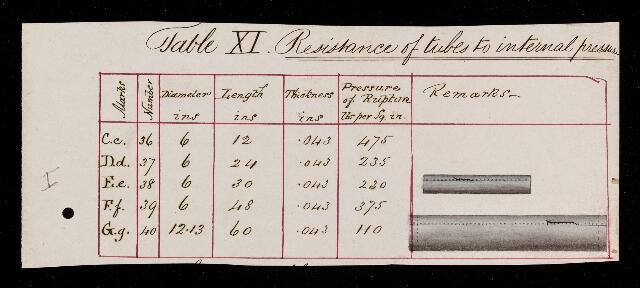 Table XI. Resistance of tubes to internal pressure
Marks Number Diameter ins Length ins Thickness ins Pressure of Rupture lbs per Sq. in. Remarks
C.c. 36 6 12 .043 475
D.d. 37 6 24 .043 235
E.e. 38 6 30 .043 220
F.f. 39 6 48 .043 375
G.g. 40 12.13 60 .043 110
I